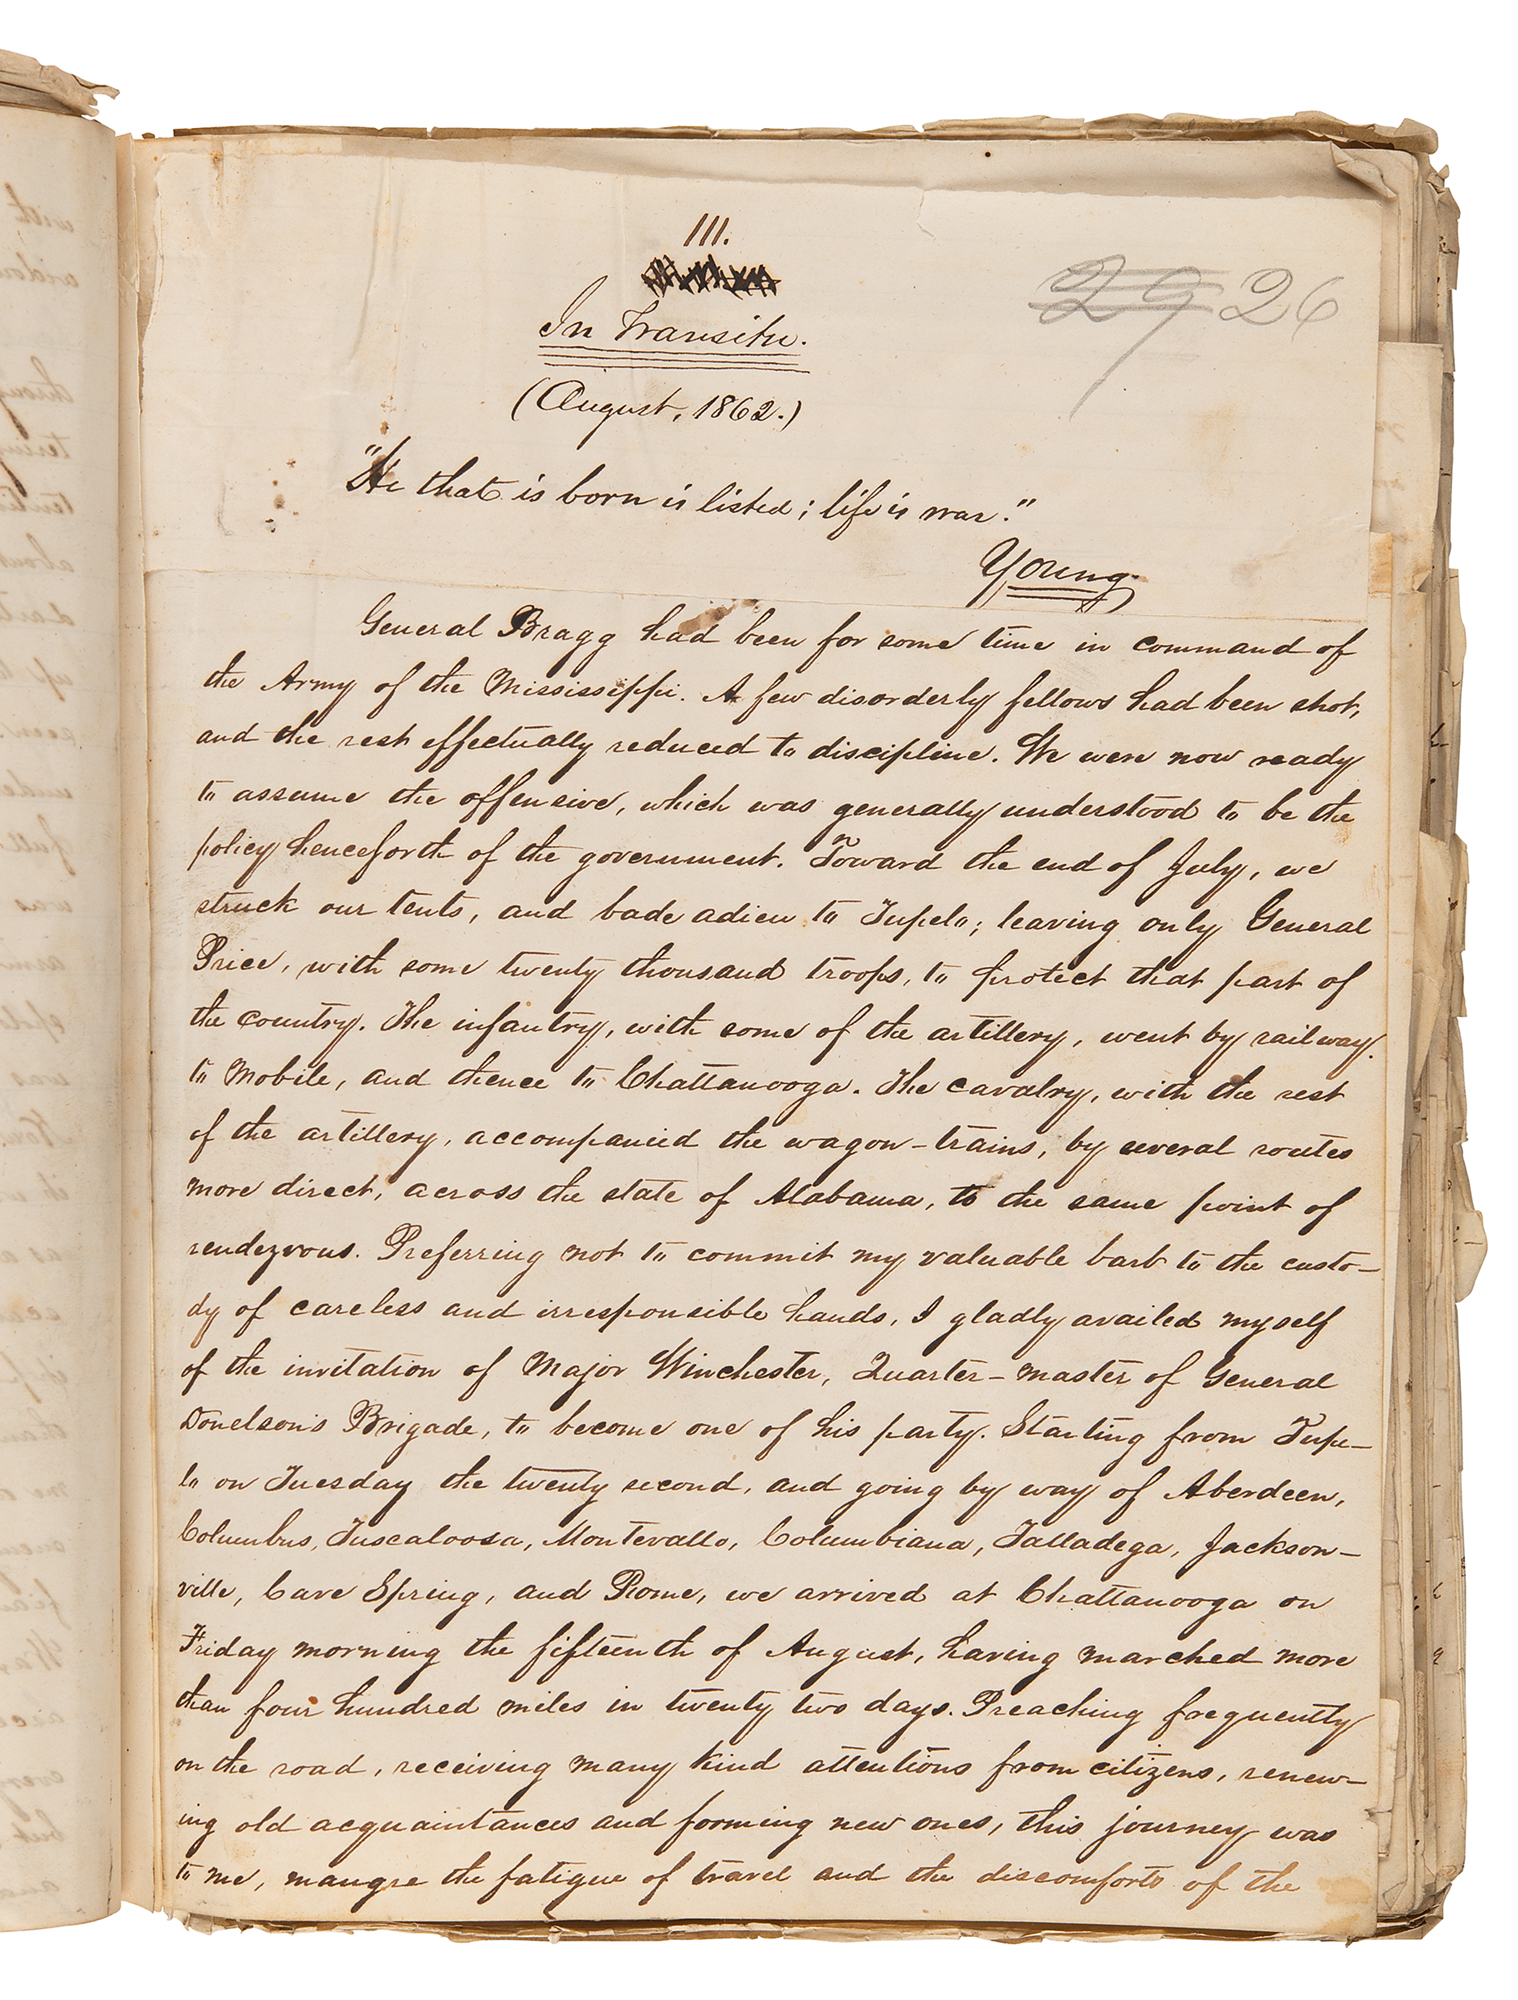 III.
29 26
In Transitu.
(August, 1862.)
"He that is born is listed; life is war."
Young.
General Bragg had been for some time in command of
the Army of the Mississippi. A few disorderly fellows had been shot,
and the rest effectually reduced to discipline. We were now ready
to assume the offensive, which was generally understood to be the
policy henceforth of the government. Toward the end of July, we
struck our tents, and bade adieu to Tupelo; leaving only General
Price, with some twenty thousand troops, to protect that part of
the country. The infantry, with some of the artillery, went by railway.
to Mobile, and thence to Chattanooga. The cavalry, with the rest
of the artillery, accompanied the wagon-trains, by several routes
more direct, across the state of Alabama, to the same point of
rendezvous. Preferring not to commit my valuable barb to the custo-
dy of careless and irresponsible hands, I gladly availed myself
of the invitation of Major Winchester, Quarter-master of General
Donelson's Brigade, to become one of his party. Starting from Tupe-
lo on Tuesday the twenty second, and going by way of Aberdeen,
Columbus, Tuscaloosa, Montevallo, Columbiana, Talladega, Jackson-
ville, Cave Spring, and Rome, we arrived at Chattanooga on
Friday morning the fifteenth of August, having marched more
than four hundred miles in twenty two days. Preaching frequently
on the road, receiving many kind attentions from citizens, renew-
ing old acquaintances and forming new ones, this journey was
to me, maugre the fatigue of travel and the discomforts of the